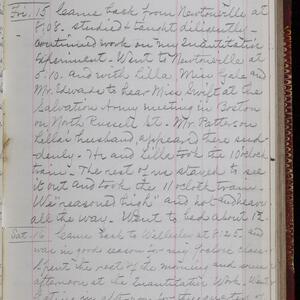 Fri. 15 Came back from Newtonville at
8.08. studied & taught diligently -
continued work on my Quantitative
Experiment. Went to Newtonville at
5.10. and with Lilla Miss Gale and
Mr. Edwards to hear Miss Swift at the
Salvation Army meeting in Boston
on North Russell St. Mr. Patterson
Lilla's husband, appeared there sud-
denly. He and Lilla took the 10 o'clock
train. The rest of us stayed to see
it out and took the 11 o'clock train.
We "reasoned high" and hot
all the way. Went to bed about 12.
Sat. 16 Came back to Wellesley at 8.25. and
was in good season for my class.
Spent the rest of the morning and
afternoon at the Quantitative Work. Went